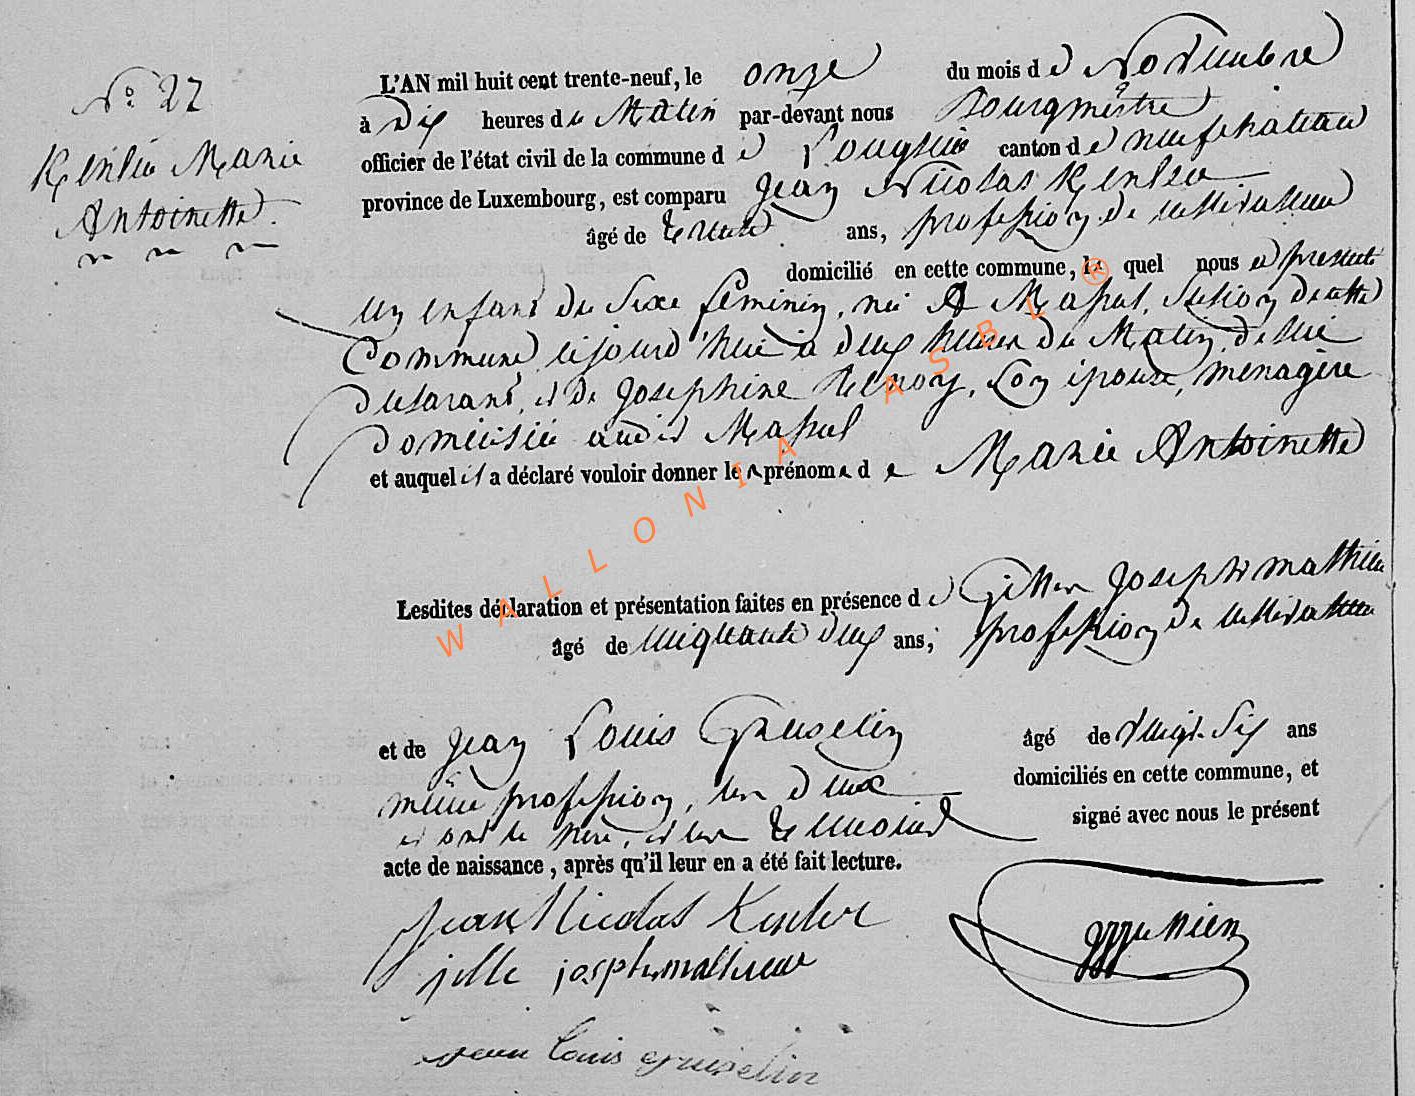 N° 27
Marie
Antoinette.
L'AN mil huit cent trente-neuf, le onze du mois de Novembre
à Dix heures du Matin par-devant nous Bourgmêstre
officier de l'état civil de la commune de canton de neufchateau
province de Luxembourg, est comparu Jean Nicolas
âgé de trente ans, profession de cultivateur
domicilié en cette commune, le quel nous a présenté
un enfant du sexe féminin, née à Massul, section de cette
Commune, cejourd'hui à deux heures du Matin, de lui
déclarant, et de Josephine son épouse, ménagère
domiciliée audit Massul
et auquel il a déclaré vouloir donner les prénoms de Marie Antoinette
Lesdites déclaration et présentation faites en présence de Joseph mathieu
âgé de cinquante deux ans, profession de cultivateur
et de Jean Louis Gruselin âgé de vingt-six ans
même profession, les deux domiciliés en cette commune, et
et ont le père, et les témoins signé avec nous le présent
acte de naissance, après qu'il leur en a été fait lecture.
Jean Nicolas
jille joseph mathieu
jean louis gruselin
WALLONIA ASBL ®